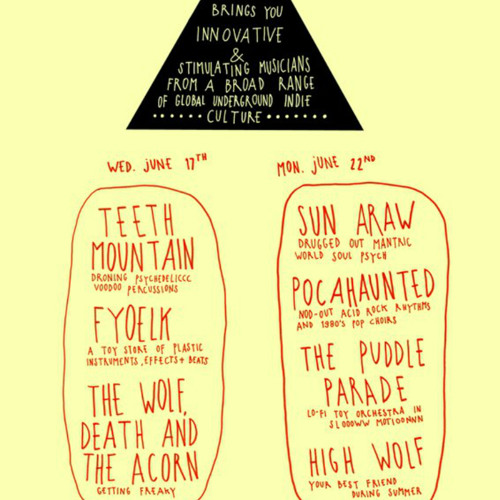 BRINGS YOU
INNOVATIVE
&
STIMULATING MUSICIANS
FROM A BROAD RANGE
OF GLOBAL UNDERGROUND INDIE
CULTURE
WED. JUNE 17TH
TEETH
MOUNTAIN
DRONING PSYCHEDELICCC
VOODOO PERCUSSIONS
FYOELK
A TOY STORE OF PLASTIC
INSTRUMENTS, EFFECTS + BEATS
THE WOLF,
DEATH AND
THE ACORN
GETTING FREAKY
MON. JUNE 22ND
SUN ARAW
DRUGGED OUT MANTRIC
WORLD SOUL PSYCH
POCAHAUNTED
NOD-OUT ACID ROCK RHYTHMS
AND 1980'S POP CHOIRS
THE PUDDLE
PARADE
LO-FI TOY ORCHESTRA IN
SLOOOWW MOTIOONNN
HIGH WOLF
YOUR BEST FRIEND
DURING SUMMER